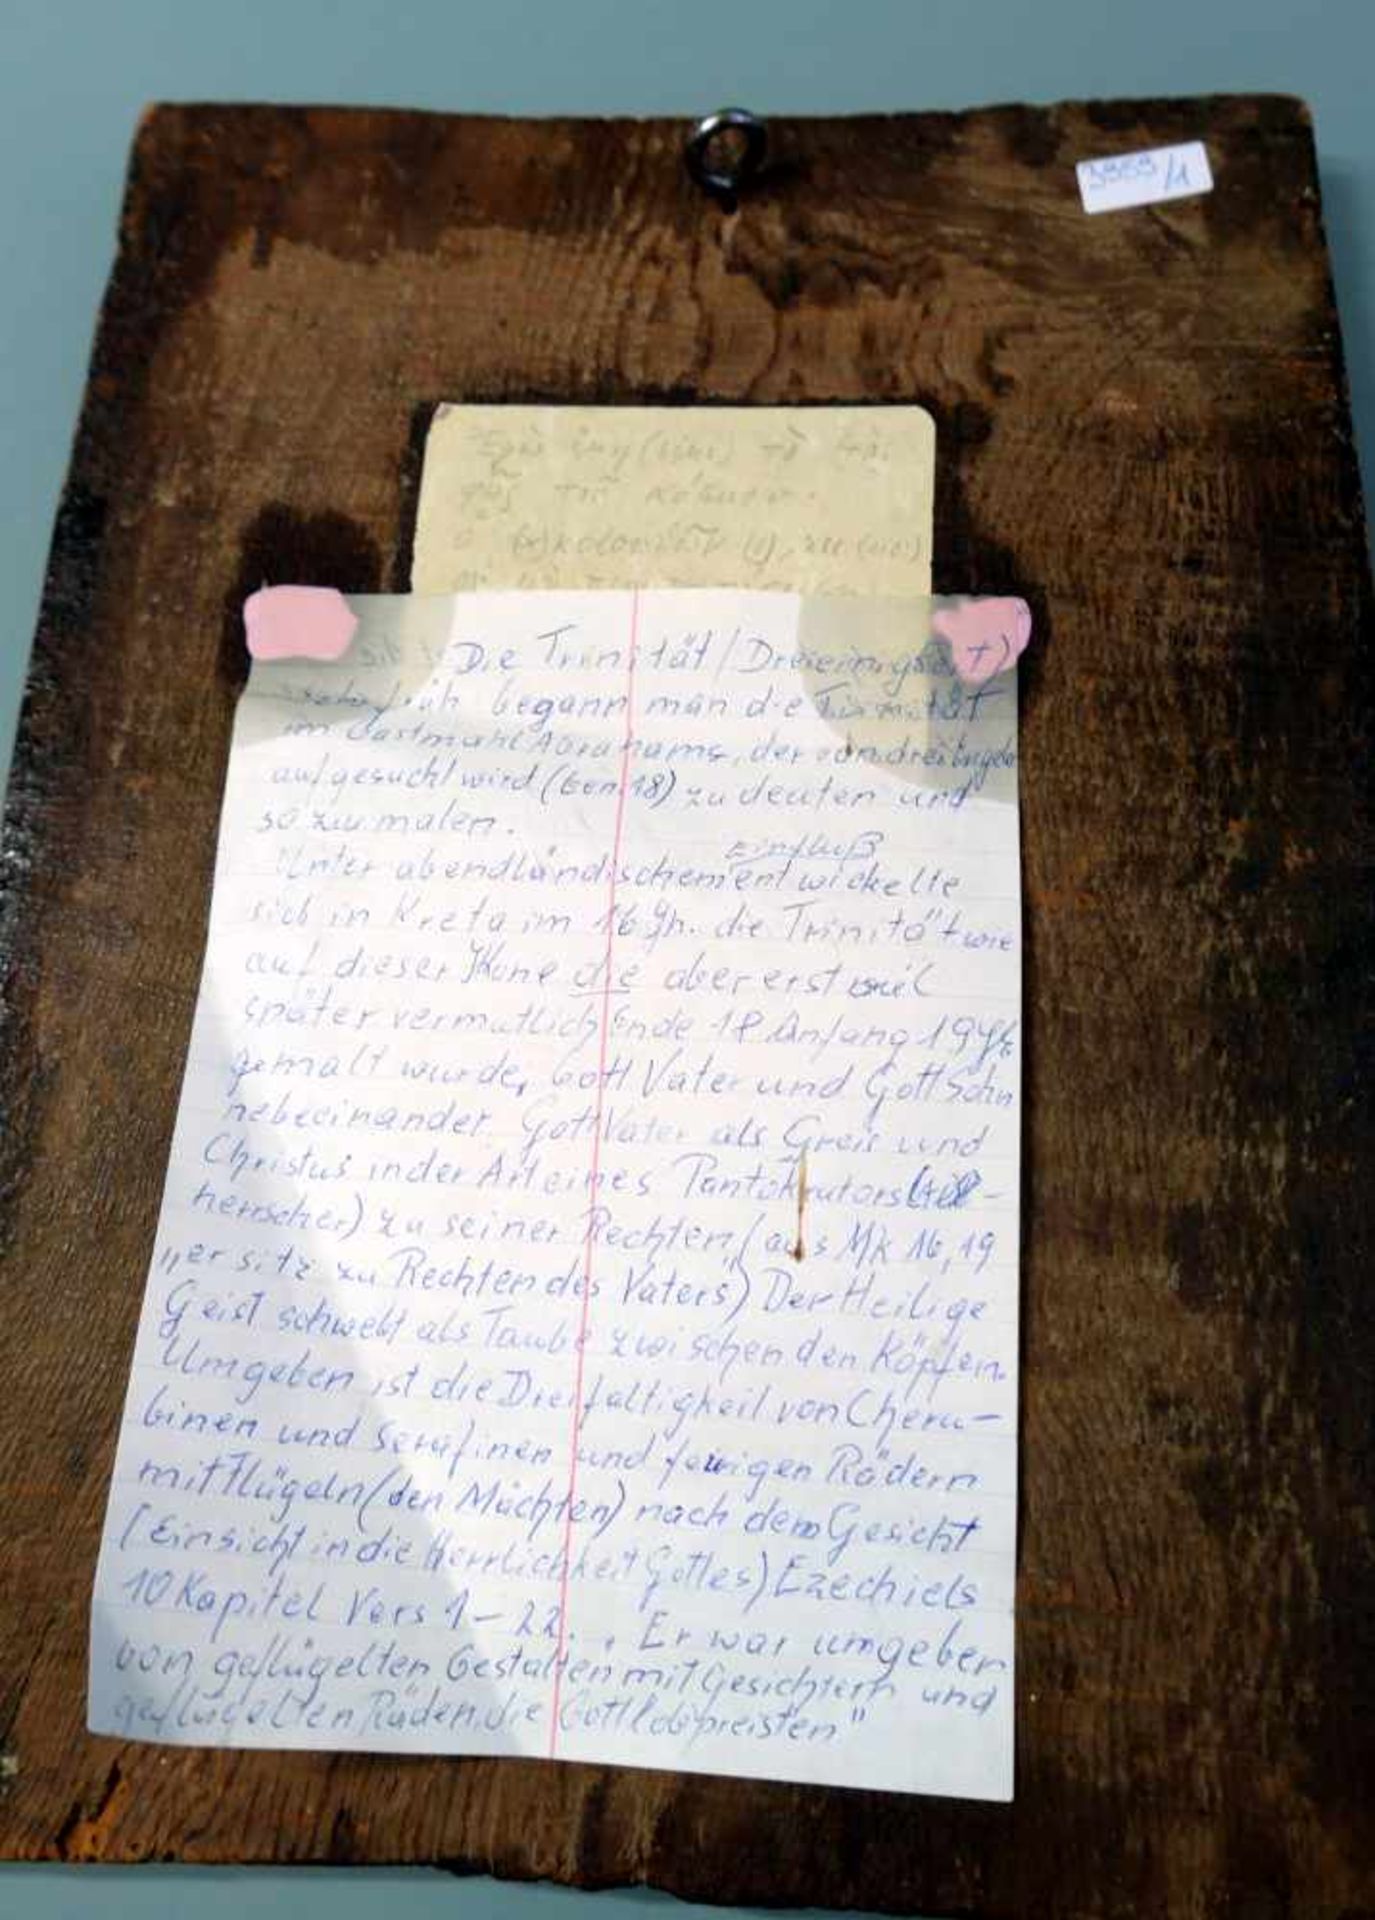 3959/1
τὸ
τοῦ κόσμου.
ὁ ἀκολουθῶν
Die Trinität (Dreieinigkeit)
begann man die Trinität
im Gastmahl Abrahams, der von drei Engeln
aufgesucht wird (Gen. 18) zu deuten und
so zu malen.
Einfluß
Unter abendländischem entwickelte
sich in Kreta im 16 Jh. die Trinität wie
auf dieser Ikone die aber erst viel
später vermutlich Ende 18 Anfang 19 Jh
gemalt wurde, Gott Vater und Gott Sohn
nebeeinander. Gott Vater als Greis und
Christus in der Art eines Pantokrators (All-
herrscher) zu seiner Rechten, (aus Mk 16,19
„er sitz zu Rechten des Vaters") Der Heilige
Geist schwebt als Taube zwischen den Köpfen.
Umgeben ist die Dreifaltigkeit von Cheru-
binen und Serafinen und feurigen Rädern
mit Flügeln (den Mächten) nach dem Gesicht
(Einsicht in die Herrlichkeit Gottes) Ezechiels
10 Kapitel Vers 1-22. „Er war umgeben
von geflügelten Gestalten mit Gesichtern und
geflügelten Räden, die Gott lobpreisten"